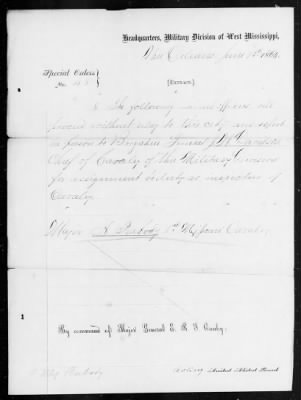 Headquarters, Military Division of West Mississippi,
New Orleans June 1864.
Special Orders
No.
[Extract.]
8. The following officers will
proceed without delay to this city and report
in person to Brigadier General
Chief of Cavalry of this Military Division
for assignment to duty as inspectors of
Cavalry
Major A. Peabody Missouri Cavalry
By command of Major General E. R. S. Canby:
Maj Peabody
Assistant Adjutant General